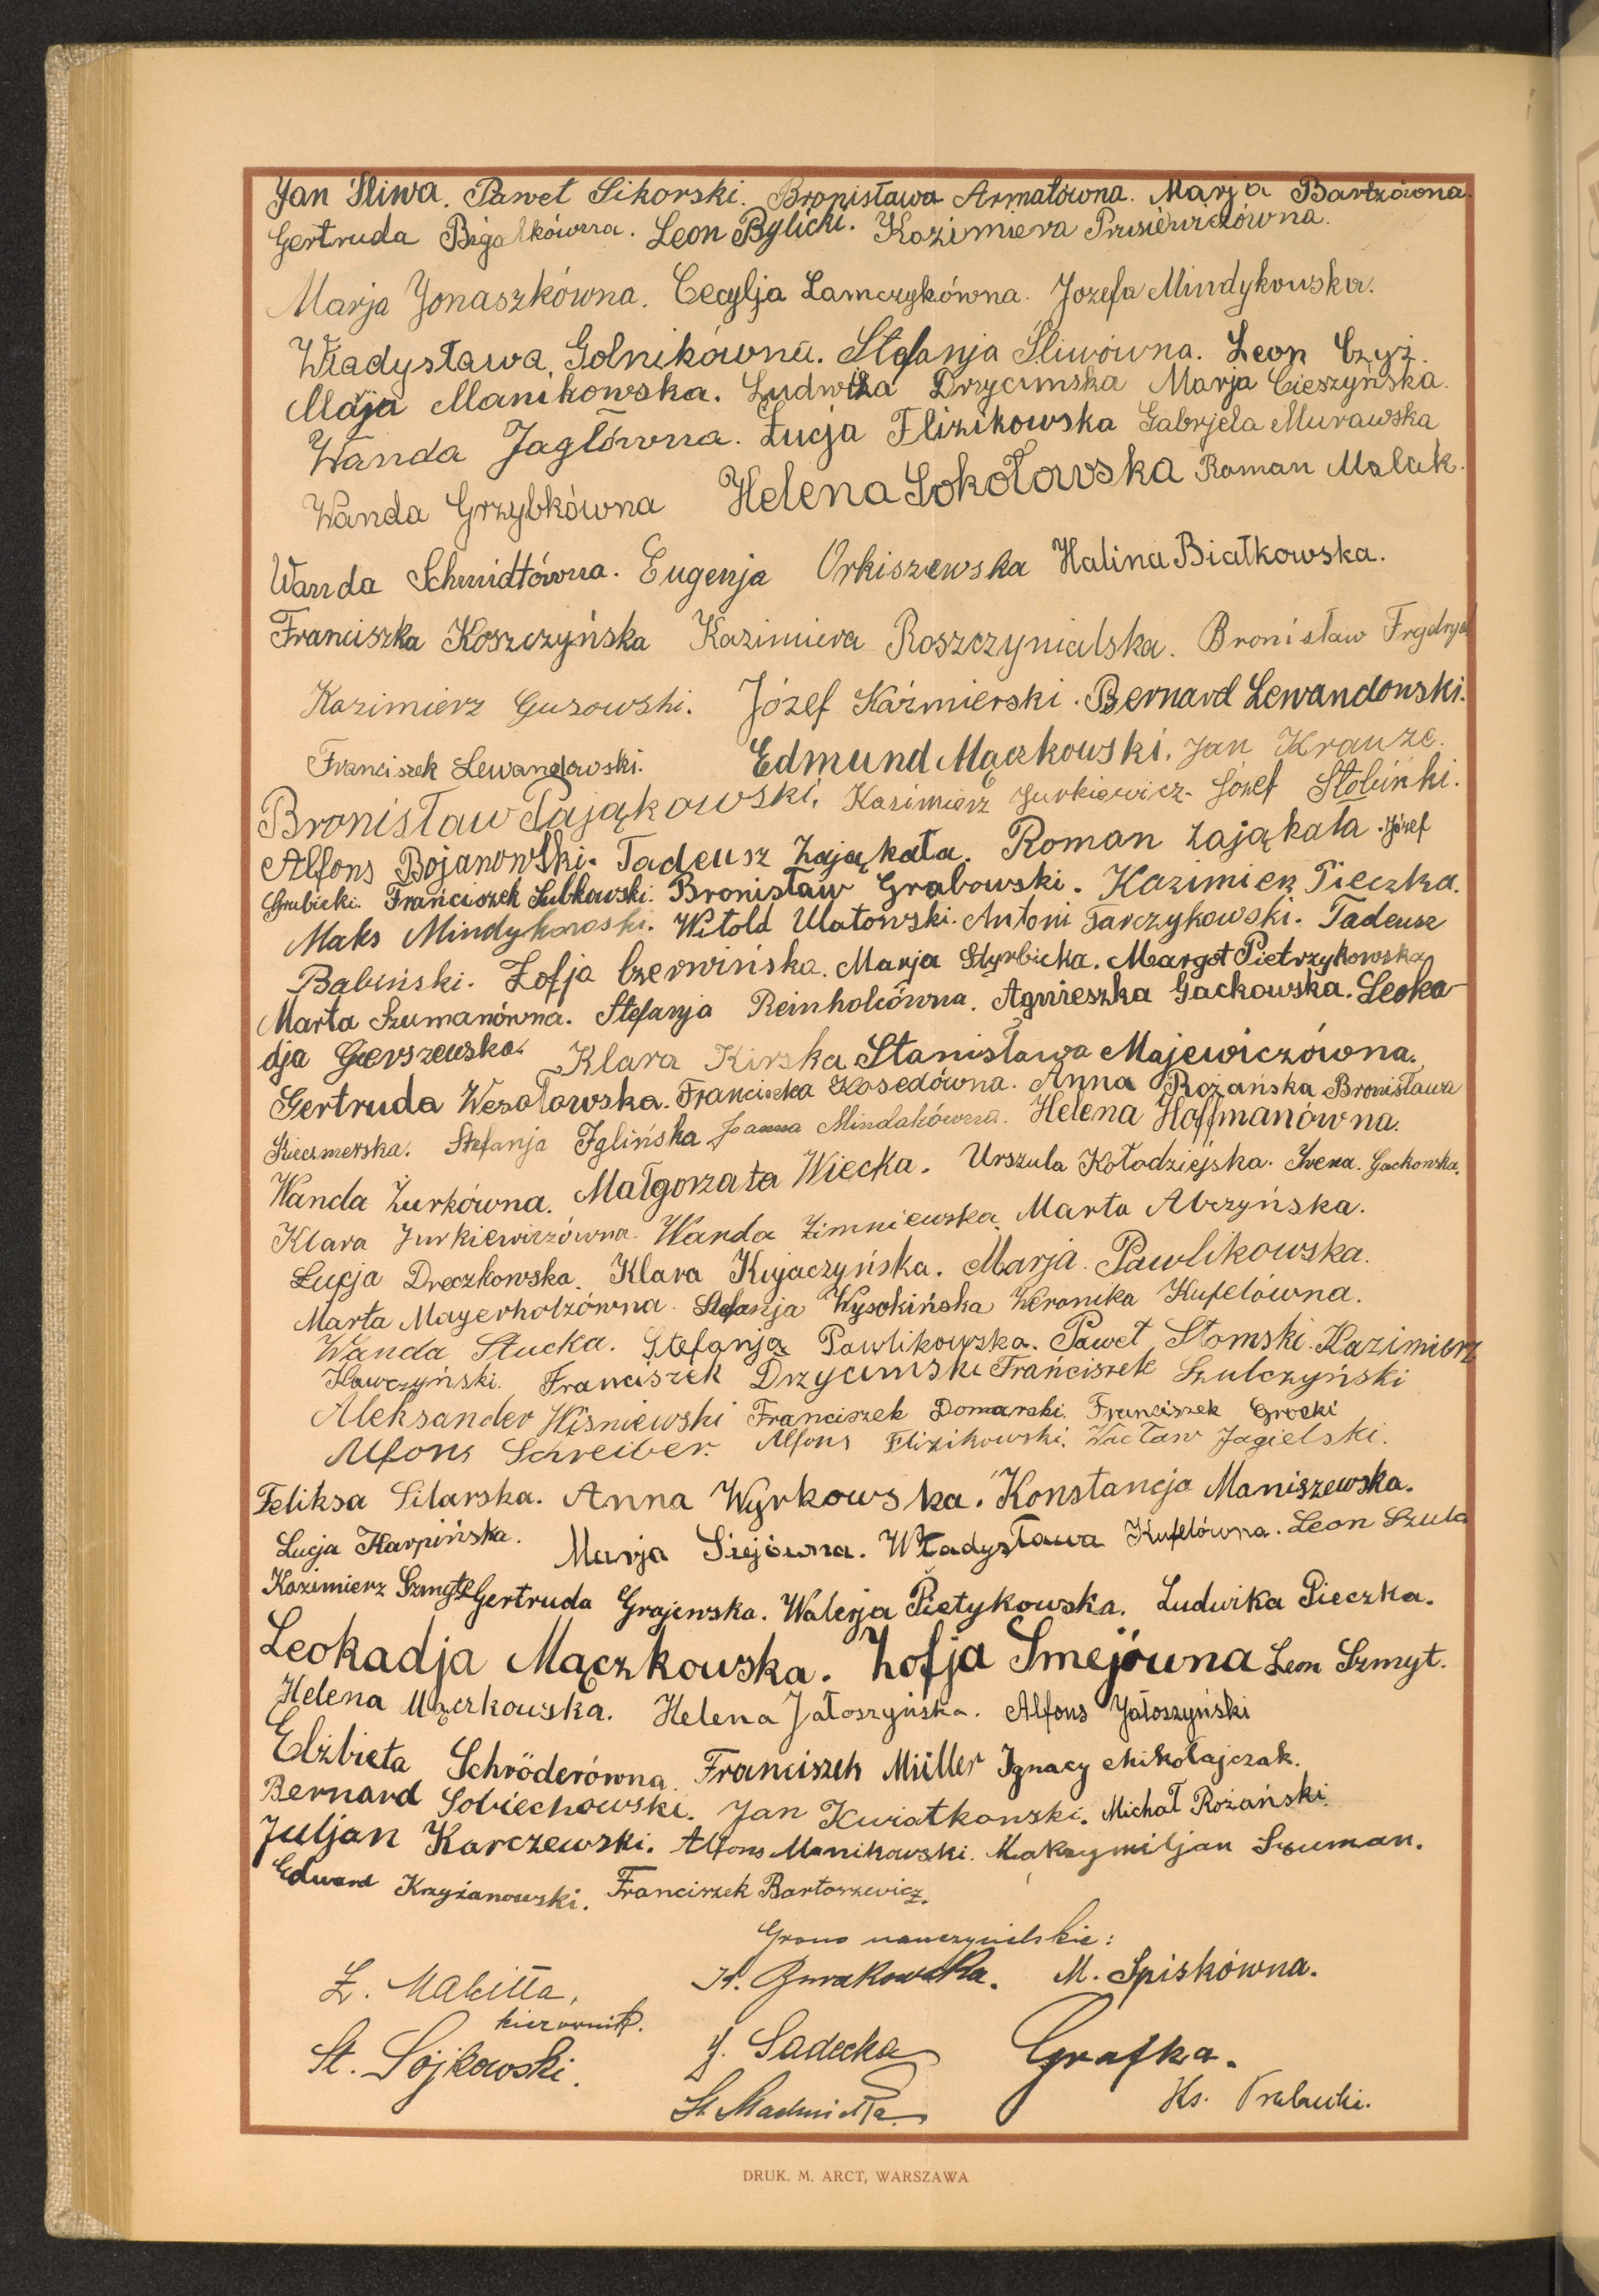 Jan Śliwa. Paweł Sikorski. Bronisława Armatówna. Marja Bartzówna.
Gertruda Bigalkówna. Leon Bylicki. Kazimiera
Marja Jonaszkówna. Cecylja Lamczykówna. Jozefa Mindykowska.
Władysława Golnikówna. Stefanja Śliwówna. Leon Czyż.
Marja Manikowska. Ludwika Drzycimska Marja Cieszyńska.
Wanda Jagłówna. Łucja Flizikowska Gabrjela Murawska
Wanda Grzybkówna Helena Sokołowska Roman Malak.
Wanda Schmidtówna. Eugenja Orkiszewska Halina Białkowska.
Franciszka Koszczyńska Kazimiera Roszczynialska. Bronisław
Kazimierz Guzowski. Józef Kaźmierski. Bernard Lewandowski.
Franciszek Lewandowski. Edmund Mączkowski. Jan Krauze.
Bronisław Pająkowski. Kazimierz Jurkiewicz. Józef Słobiński.
Alfons Bojanowski. Tadeusz Zająkała. Roman Zająkała. Józef
Grubicki. Franciszek Lubkowski. Bronisław Grabowski. Kazimierz Pieczka.
Maks Mindykowski. Witold Ulatowski. Antoni Tarczykowski. Tadeusz
Babiński. Zofja Czerwińska. Marja Styrbicka. Margot Pietrzykowska
Marta Szumanówna. Stefanja Reinholcówna. Agnieszka Gackowska. Leoka-
dja Gierszewska. Klara Kirska Stanisława Majewiczówna.
Gertruda Wesołowska. Franciszka Kosedówna. Anna Rożańska Bronisława
Stefanja Iglińska Joanna Mindakówna. Helena Hoffmanówna.
Wanda Żurkówna. Małgorzata Wiecka. Urszula Kołodziejska. Irena. Gackowska.
Klara Jurkiewiczówna. Wanda Zimniewska. Marta Abczyńska.
Łucja Dreczkowska. Klara Kijaczyńska. Marja Pawlikowska.
Marta Mayerholzówna. Stefanja Wysokińska Weronika Kufelówna.
Wanda Stucka. Stefanja Pawlikowska. Paweł Słomski. Kazimierz
Hawczyński. Franciszek Drzycimski Franciszek Szulczyński
Aleksander Wiśniewski Franciszek Domarski. Franciszek Grocki
Alfons Schreiber. Alfons Flizikowski. Wacław Jagielski.
Feliksa Silarska. Anna Wyrkowska. Konstancja Maniszewska.
Lucja Karpińska. Marja Siejówna. Władysława Kufelówna. Leon Szula
Kazimierz Szmyt Gertruda Grajewska. Walerja Pietykowska. Ludwika Pieczka.
Leokadja Mączkowska. Zofja Smejówna Leon Szmyt.
Helena Mączkowska. Helena Jałoszyńska. Alfons Jałoszyński
Elżbieta Schröderówna. Franciszek Müller Ignacy Mikołajczak.
Bernard Sobiechowski. Jan Kwiatkowski. Michał Rożański.
Juljan Karczewski. Alfons Manikowski. Maksymiljan Szuman.
Edward Krzyżanowski. Franciszek Bartoszewicz.
Grono nauczycielskie:
Z. Malitta, kierownik. M. Spiskówna.
St. Sojkowski. J. Sadecka Grafka.
Ks.
DRUK. M. ARCT, WARSZAWA